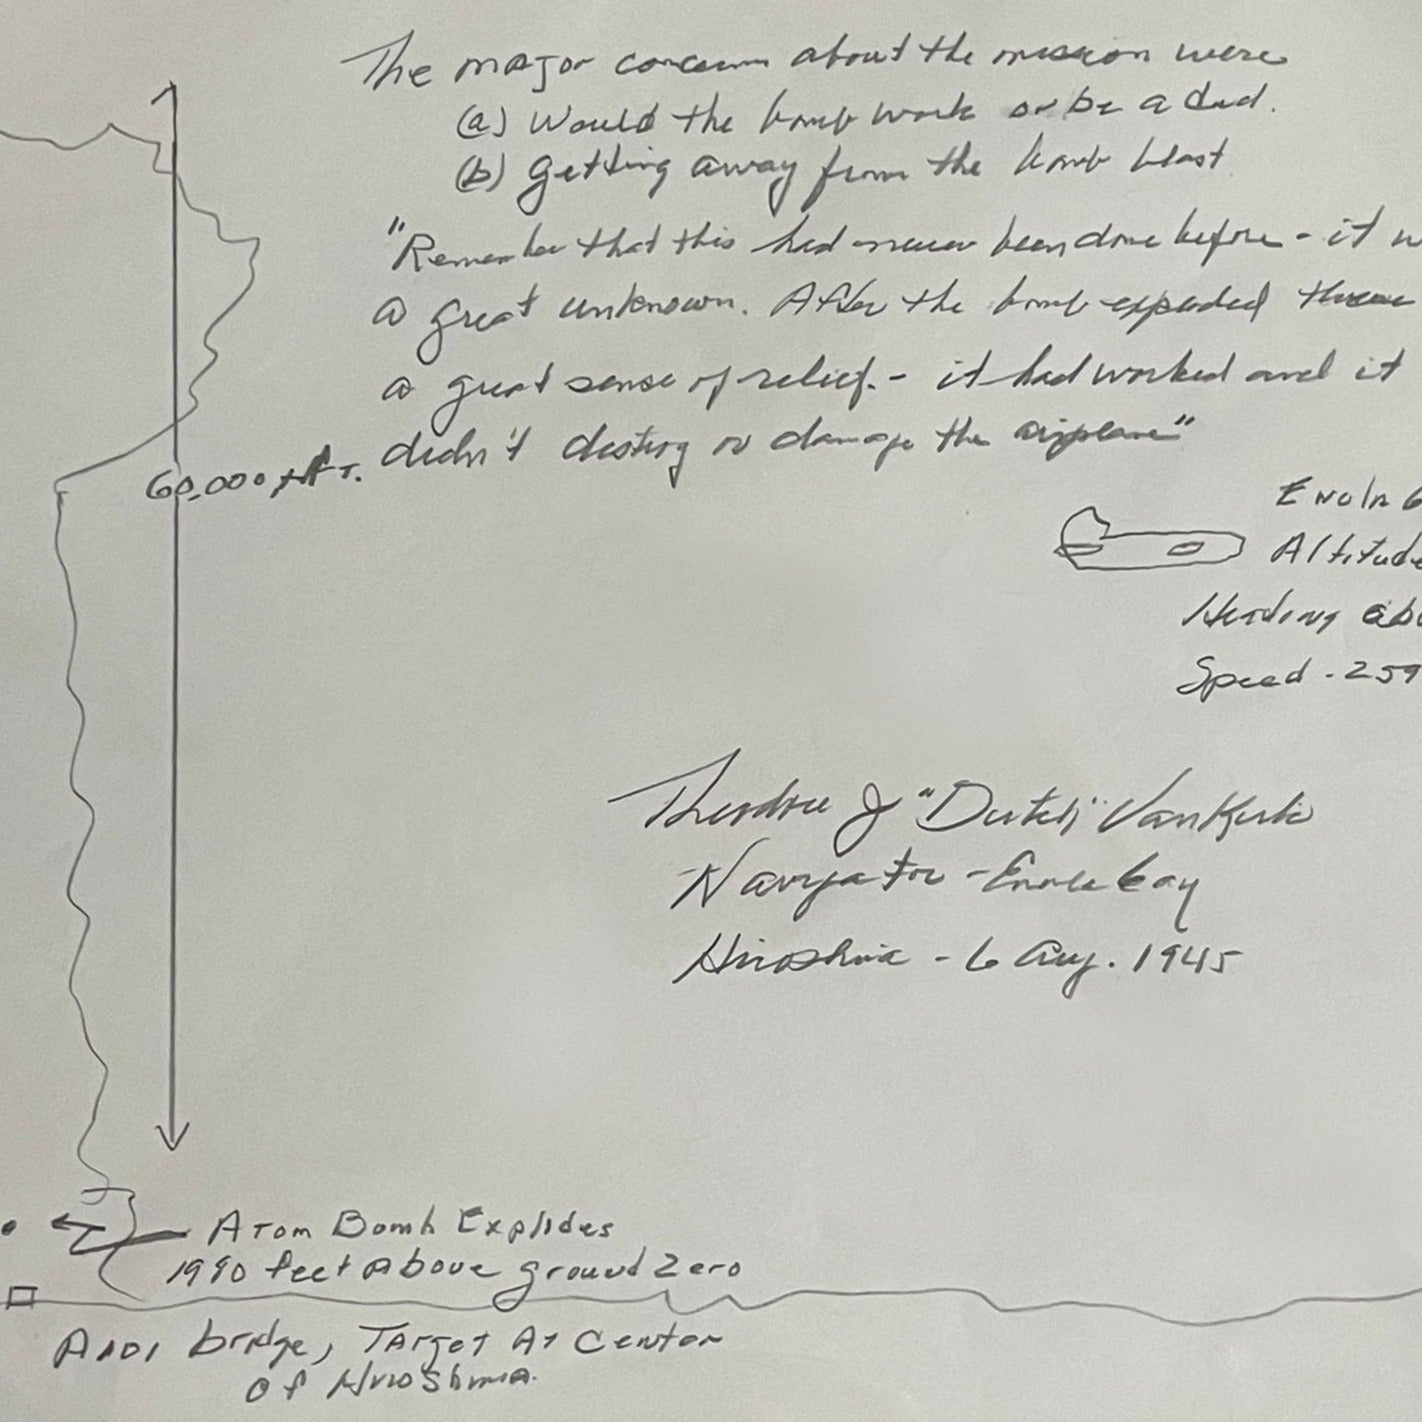 The major concerns about the mission were
(a) Would the bomb work or be a dud.
(b) Getting away from the bomb blast
"Remember that this had never been done before - it w
a great unknown. After the bomb exploded there
a great sense of relief. - it had worked and it
didn't destroy or damage the airplane"
60,000 + FT.
Enola G
Altitude
Heading abo
Speed - 259
Theodore J "Dutch" VanKirk
Navigator - Enola Gay
Hiroshima - 6 Aug. 1945
Atom Bomb Explodes
1990 feet above ground zero
Aioi bridge, Target At Center
of Hiroshima.